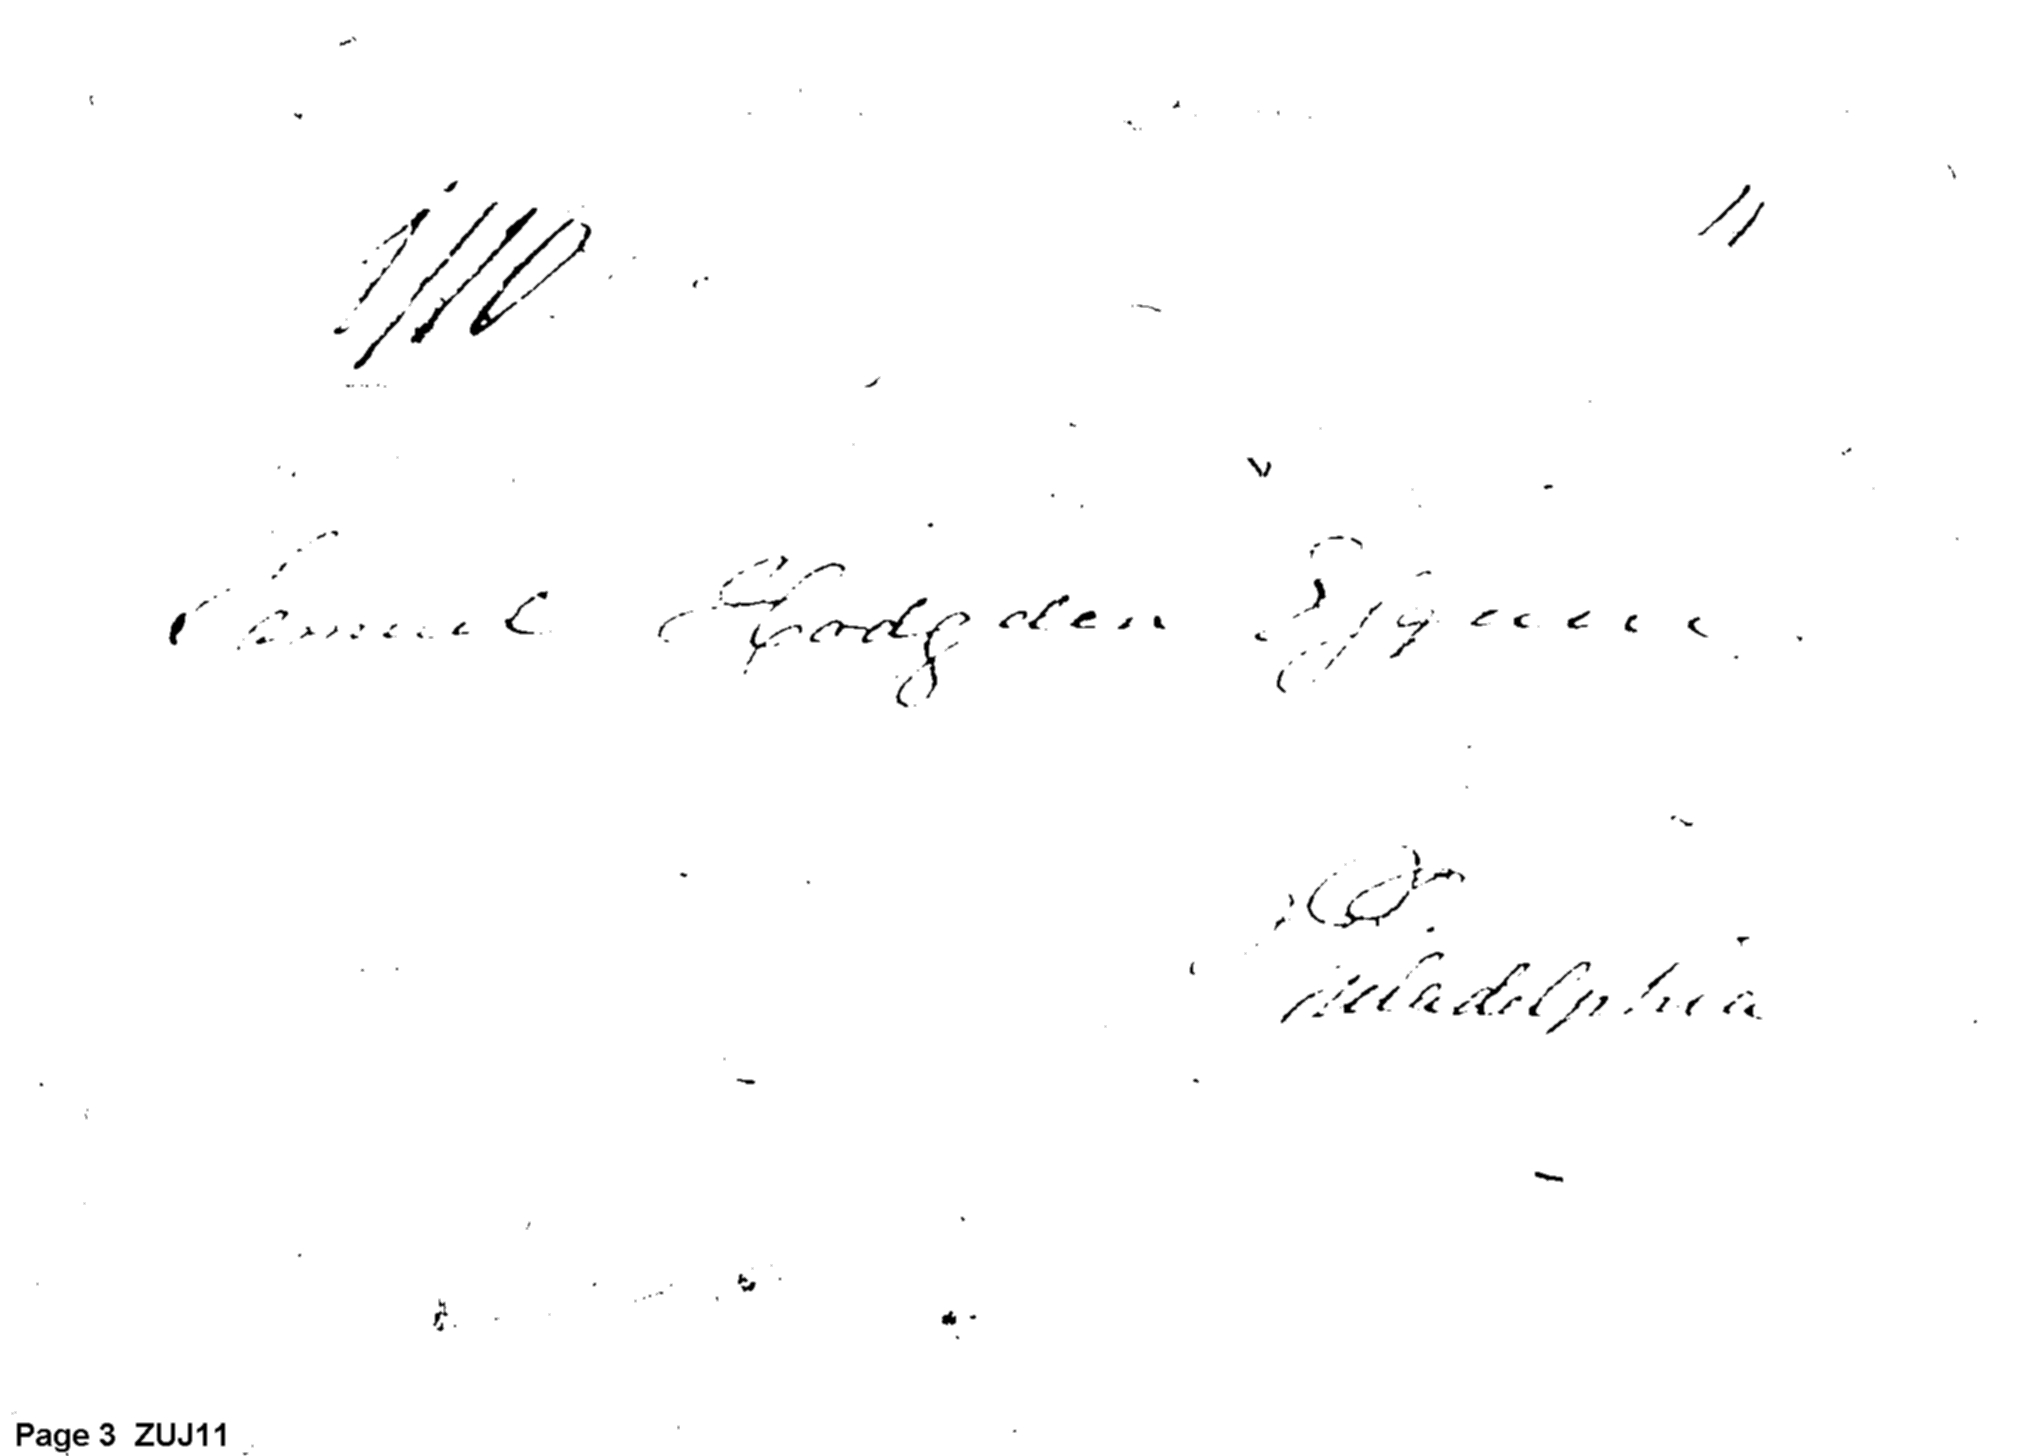 Samuel Hodgden Esquire.
Philadelphia
Page 3 ZUJ11